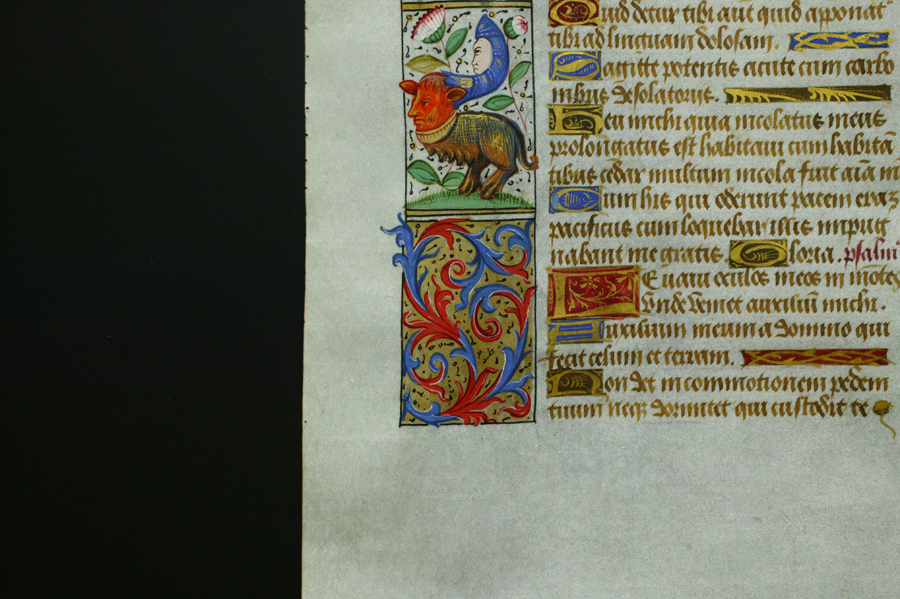 Quid detur tibi aut quid apponat̄
tibi ad linguam dolosam.
Sagitte potentis acute cum carbo
nibus desolatoriis.
Heu michi quia incolatus meus
prolongatus est habitaui cum habitā
tibus cedar multum incola fuit aīa m
Cum his qui oderunt pacem eraꝫ
pacificus cum loquebar illis impug
nabant me gratis. Gloria. psalm̄
Leuaui oculos meos in motes
Vnde veniet auxiliū michi.
Auxilium meum a domino qui
fecit celum et terram.
Non det in commotionem pedem
tuum neqꝫ dormitet qui custodit te